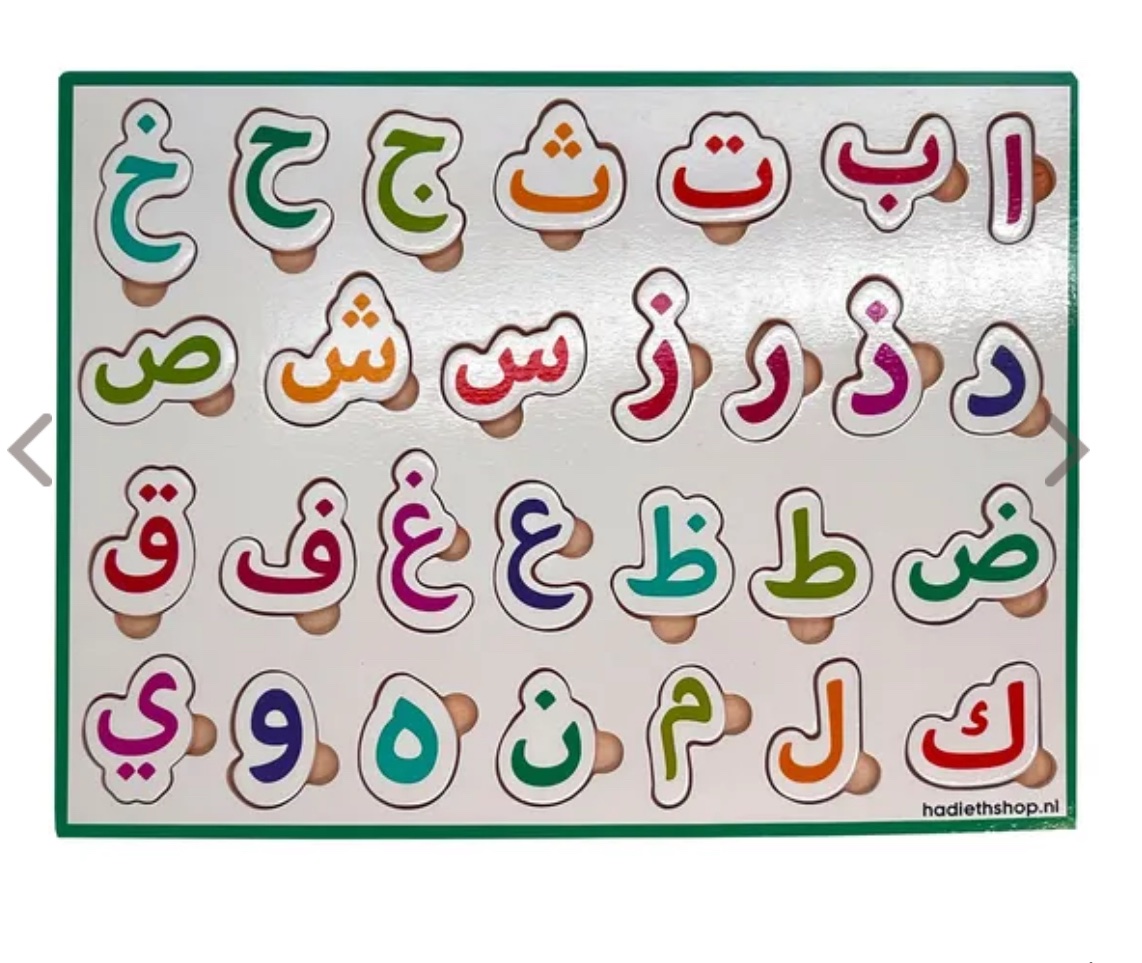 ا ب ت ث ج ح خ
د ذ ر ز س ش ص
ض ط ظ ع غ ف ق
ك ل م ن ه و ي
hadiethshop.nl